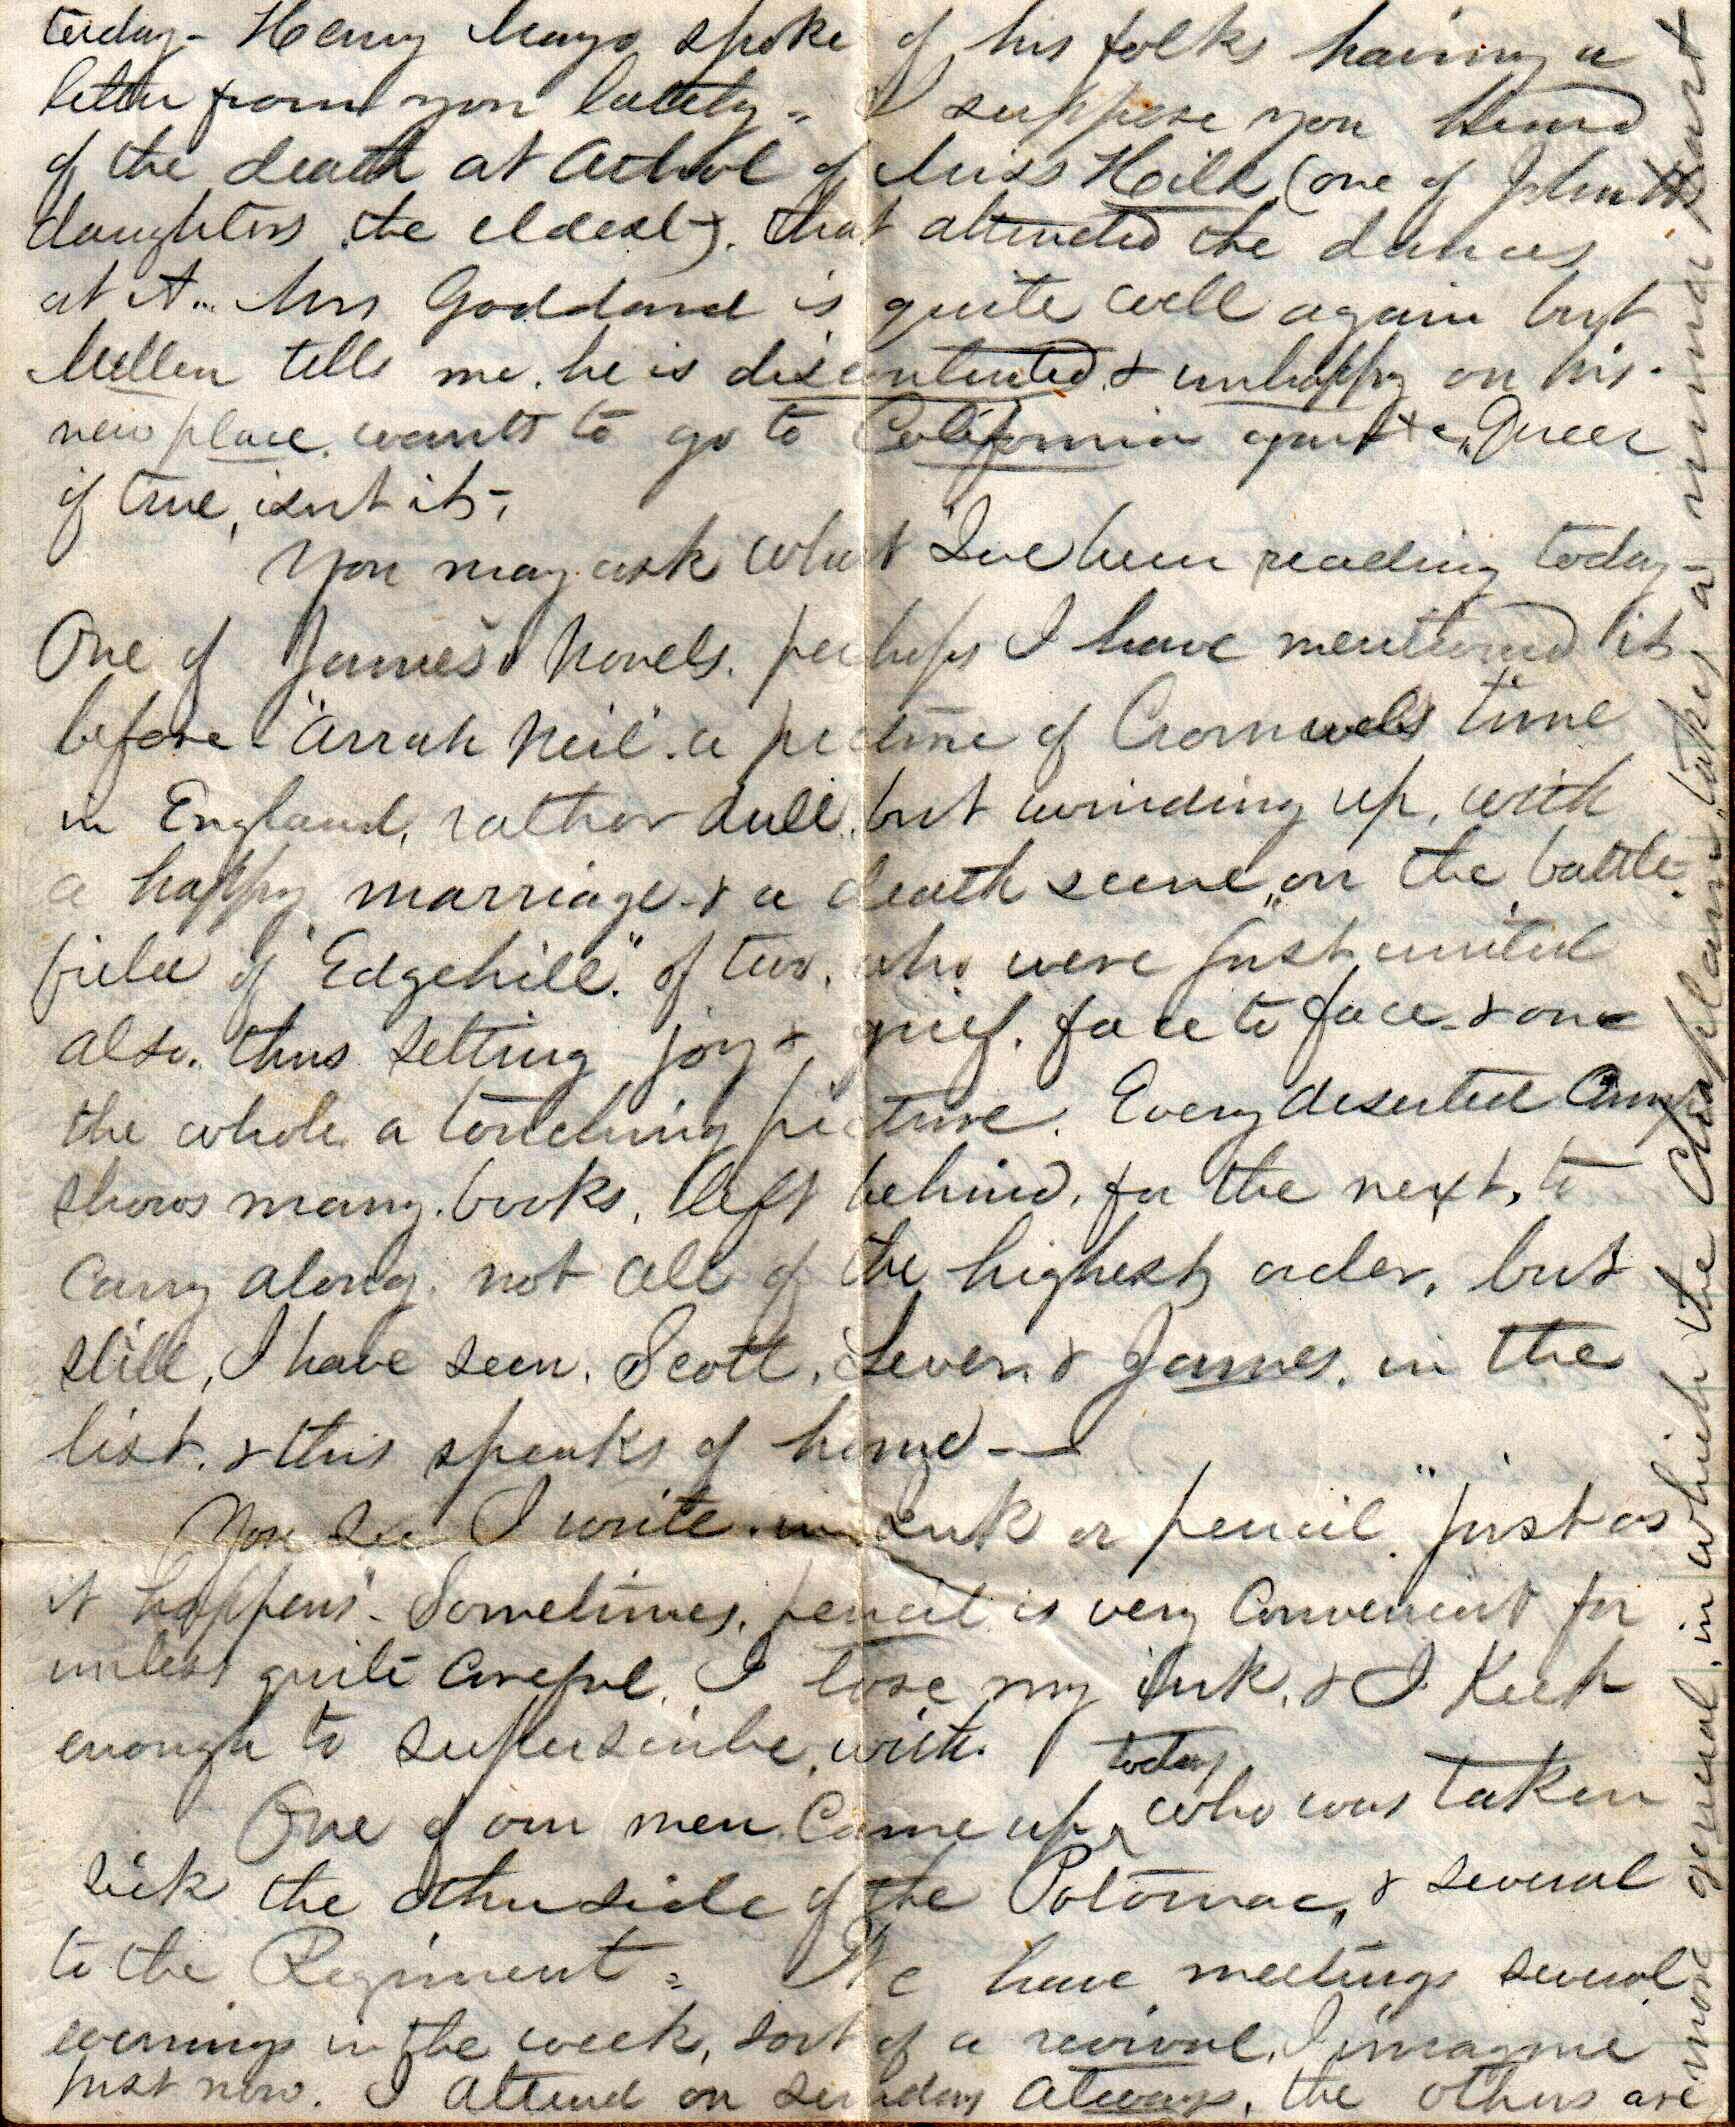 terday - Henry Mayo spoke of his folks having a
letter from you lately - I suppose you heard
of the death at Athol of Miss Hill (one of John Hs
daughters the eldest). that attended the dances
at A.. Mrs Goddard is quite well again but
Mellen tells me. he is discontented & unhappy on his.
new place. wants to go to California again &c. Queer
if true, isnt it -
You may ask what I've been reading today -
One of James' Novels. perhaps I have mentioned it
before "Arrah Neil". a picture of Cromwels time
in England, rather dull. but winding up, with
a happy marriage - & a death scene, on the battle-
field of "Edgehill." of two. who were just united
also. thus setting joy & grief. face to face - & on
the whole a touching picture. Every deserted Camp
shows many books, left behind, for the next, to
carry along. not all of the highest order, but
still, I have seen, Scott, Lever, & James. in the
list. & this speaks of home —
You see I write in ink or pencil "just as
it happens" - Sometimes, pencil is very convenient for
unless quite careful, I lose my ink, & I Keep
enough to superscribe, with.
One of our men Came up today who was taken
sick the other side of the Potomac, & several
to the Regiment - We have meetings several
evenings in the week, sort of a revival, I imagine
just now. I attend on sunday always, the others are
most general, in which the Chaplain, takes a minor part